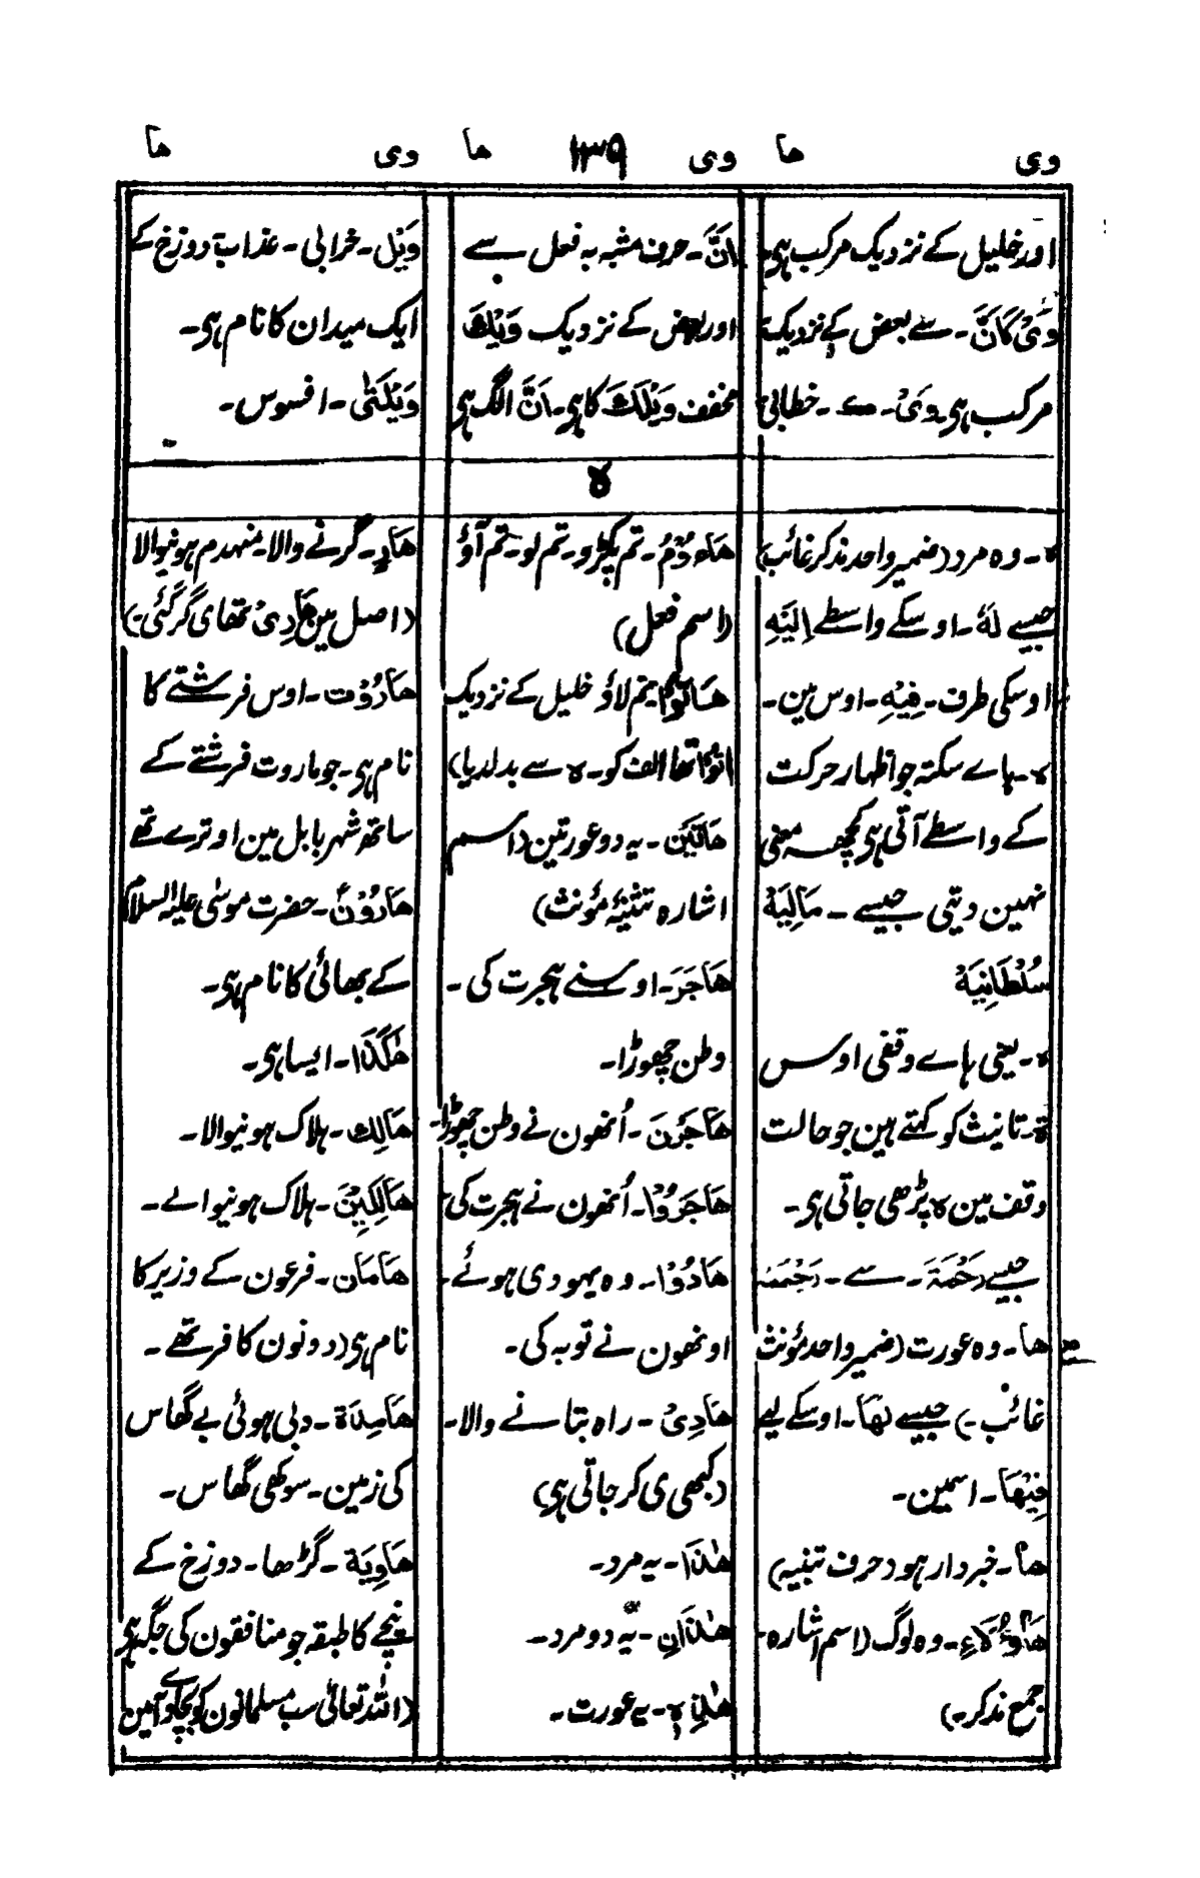 وی ھا وی ۱۳۹ ھا وی ھا
اور خلیل کے نزدیک مرکب ہی۔
وَیْ کَاَنَّ۔ سے بعض کے نزدیک
مرکب ہی۔ وَیْ۔ ۔ خطابی
اَنَّ۔ حرف مشبہ بہ فعل سے
اور بعض کے نزدیک وَیْكَ
مخفف وَیْلَكَ کا ہی۔ اَنَّ الگ ہی
وَیْل۔ خرابی۔ عذاب دوزخ کے
ایک میدان کا نام ہی۔
وَیْلَتٰی۔ افسوس۔
ہ
ہ۔ وہ مرد (ضمیر واحد مذکر غائب)
جیسے لَهٗ۔ اوسکے واسطے اِلَیْهِ
اوسکی طرف۔ فِیْهِ۔ اوس مین۔
ہ۔ ہاے سکتہ جو اظہار حرکت
کے واسطے آتی ہی کچھہ معنی
نہین دیتی جیسے۔ مَالِیَهْ
سُلْطَانِیَهْ
ہ۔ یعنی ہاے وقفی اوس
ة۔ تانیث کو کہتے ہین جو حالت
وقف مین ہ پڑھی جاتی ہی۔
جیسے رَحْمَةَ۔ سے۔ رَحْمَهْ
ھا۔ وہ عورت (ضمیر واحد مؤنث
غائب۔) جیسے لَهَا۔ اوسکے لیے
فِیْهَا۔ اسمین۔
ھَا۔ خبردار ہو (حرف تنبیہ)
هٰٓؤُلَاءِ۔ وہ لوگ (اسم اشارہ
جمع مذکر۔)
هَاؤُمُ۔ تم پکڑو۔ تم لو۔ تم آؤ
(اسم فعل)
هَاتُوْا تم لاؤ خلیل کے نزدیک
اتوا تھا الف کو۔ ہ سے بدلدیا)
هَاتَیْن۔ یہ دو عورتین (اسم
اشارہ تثنیۂ مؤنث)
هَاجَرَ۔ اوسنے ہجرت کی۔
وطن چھوڑا۔
هَاجَرْنَ۔ اُنھون نے وطن چھوڑا۔
هَاجَرُوْا۔ اُنھون نے ہجرت کی۔
هَادُوْا۔ وہ یہودی ہوئے۔
اونھون نے توبہ کی۔
هَادِیْ۔ راہ بتانے والا۔
(کبھی ی گر جاتی ہی)
هٰذَا۔ یہ مرد۔
هٰذَانِ۔ یہ دو مرد۔
هٰذِهٖ۔ یے عورت۔
هَارٍ۔ گرنے والا۔ منہدم ہونیوالا
(اصل مین هَارِیْ تھا ی گر گئی۔)
هَارُوْت۔ اوس فرشتے کا
نام ہی۔ جو ماروت فرشتے کے
ساتھ شہر بابل مین اوترے تھے
هَارُوْنُ۔ حضرت موسٰی علیہ السلام
کے بھائی کا نام ہی۔
هٰكَذَا۔ ایسا ہی۔
هَالِك۔ ہلاک ہونیوالا۔
هَالِكِیْنَ۔ ہلاک ہونیوالے۔
هَامَان۔ فرعون کے وزیر کا
نام ہی (دونون کافر تھے۔
هَامِدَة۔ دبی ہوئی بے گھاس
کی زمین۔ سوکھی گھاس۔
هَاوِیَة۔ گڑھا۔ دوزخ کے
نیچے کا طبقہ جو منافقون کی جگہ ہی
(اللہ تعالٰی سب مسلمانون کو بچاوے آمین